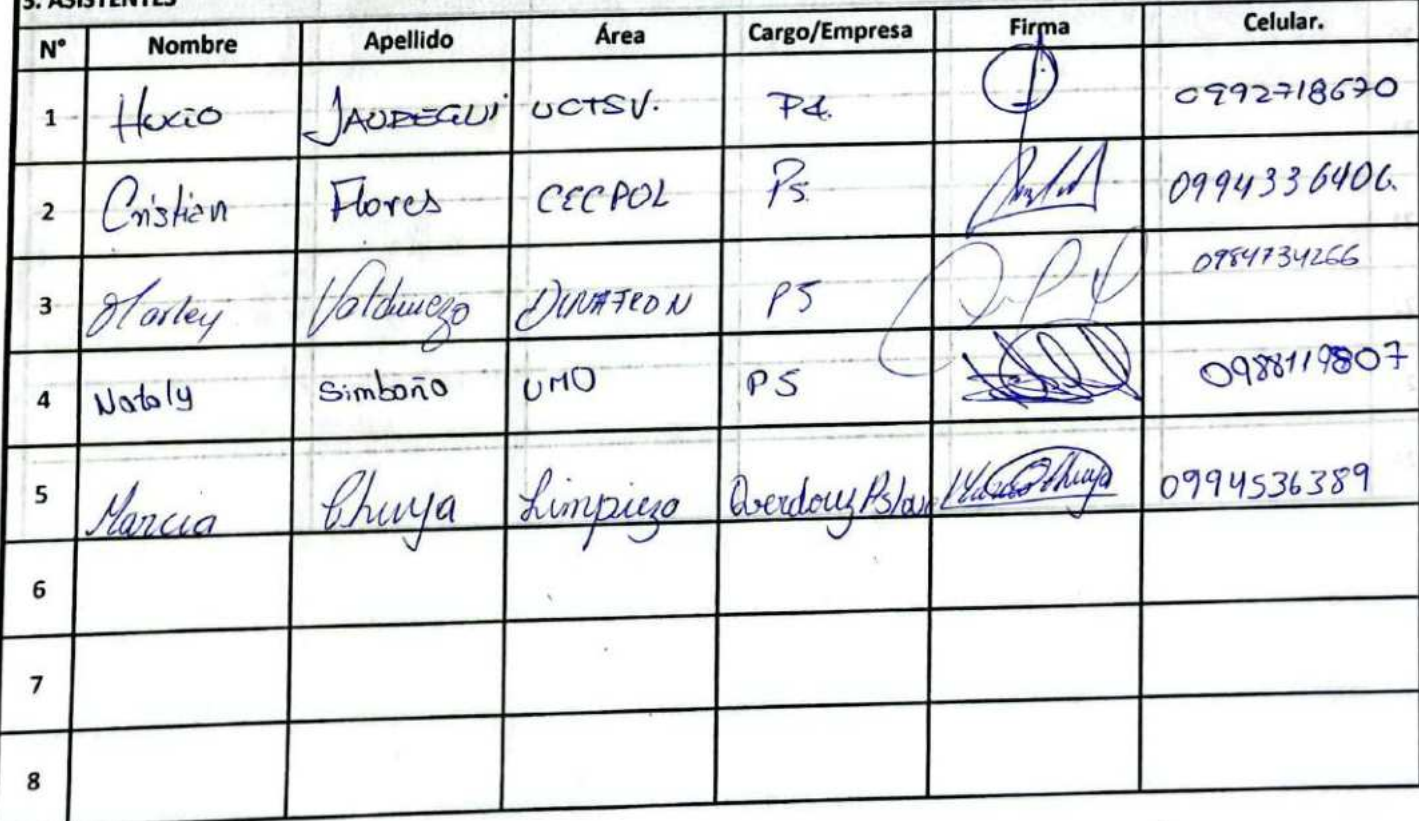 3. ASISTENTES
N° Nombre Apellido Área Cargo/Empresa Firma Celular.
1 JAUREGUI UCTSV. P4. 0992718670
2 Cristian Flores CECPOL Ps. 0994336406.
3 Harley Valdiviezo DINATRON P5 0984734266
4 Nataly Simbaño UMO P5 0988119807
5 Marcia Chuya Limpieza 0994536389
6
7
8